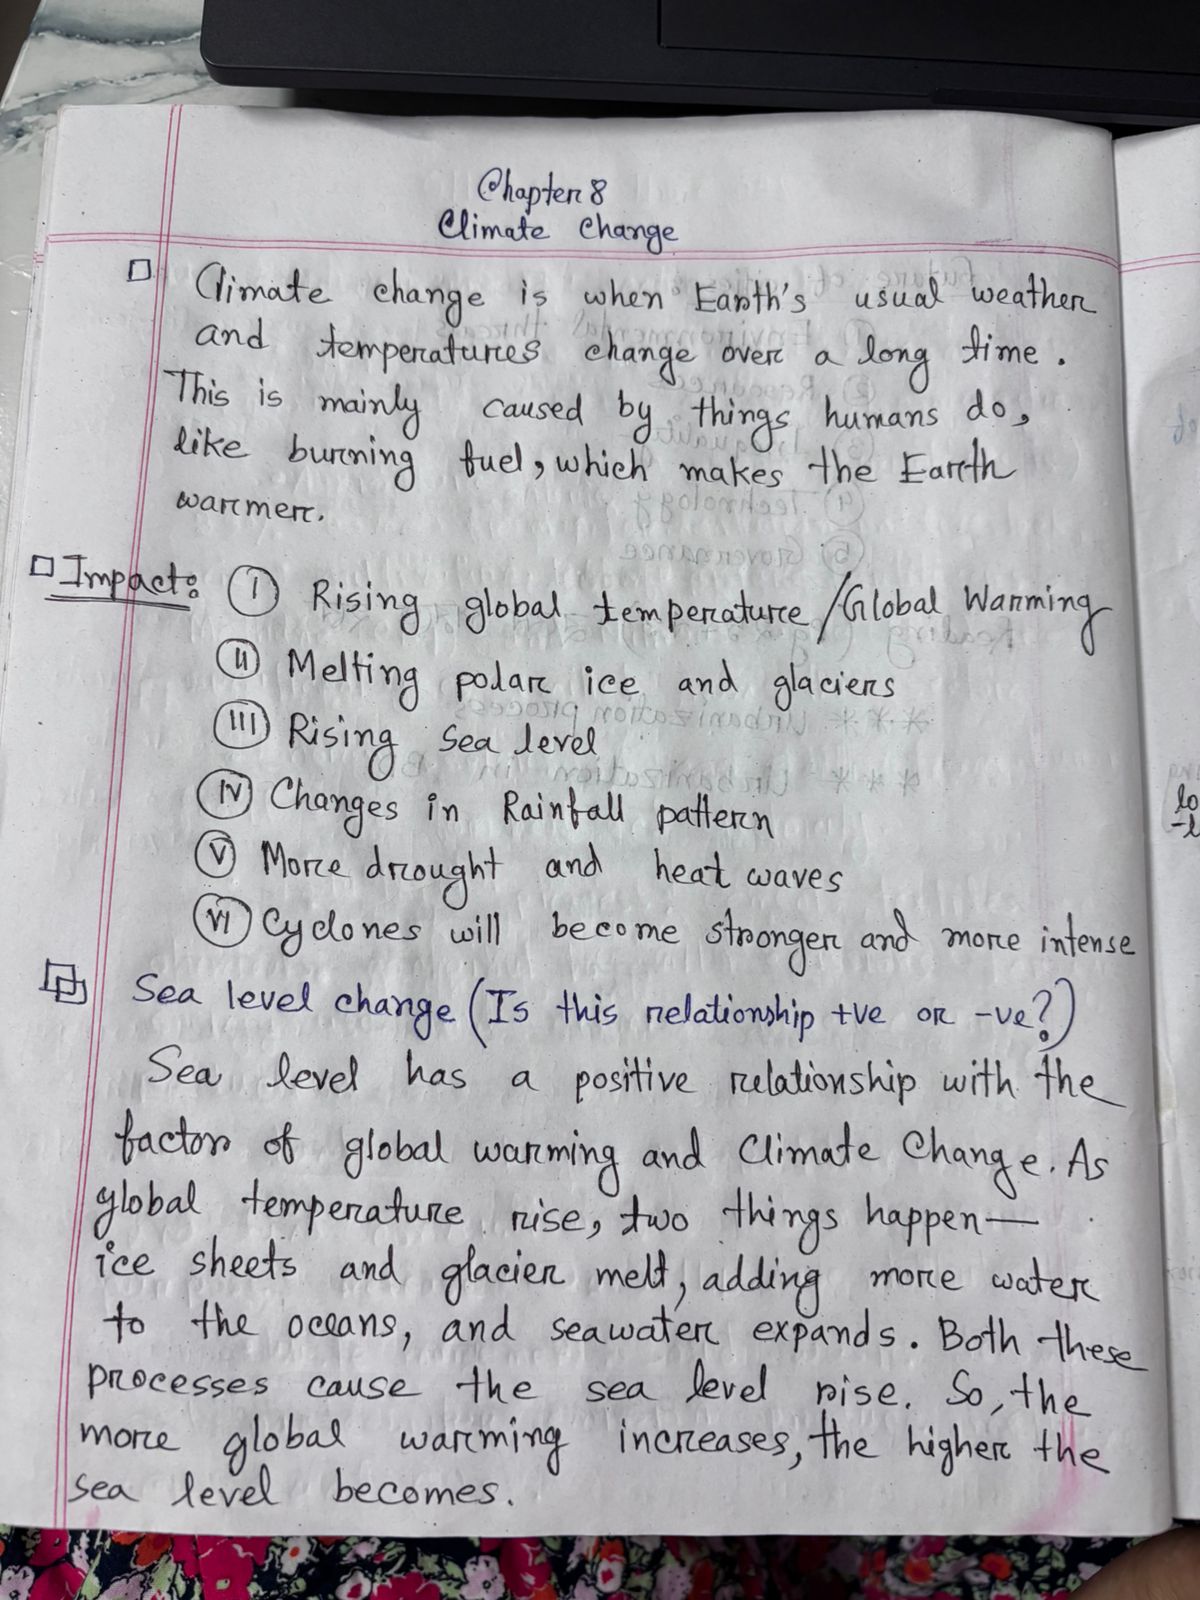 Chapter 8
Climate Change
Climate change is when Earth's usual weather
and temperatures change over a long time.
This is mainly caused by things humans do,
like burning fuel, which makes the Earth
warmer.
Impact: (I) Rising global temperature/Global Warming
(II) Melting polar ice and glaciers
(III) Rising Sea level
(IV) Changes in Rainfall pattern
(V) More drought and heat waves
(VI) Cyclones will become stronger and more intense
Sea level change (Is this relationship +ve or -ve?)
Sea level has a positive relationship with the
factor of global warming and Climate Change. As
global temperature rise, two things happen—
ice sheets and glacier melt, adding more water
to the oceans, and seawater expands. Both these
processes cause the sea level rise. So, the
more global warming increases, the higher the
sea level becomes.